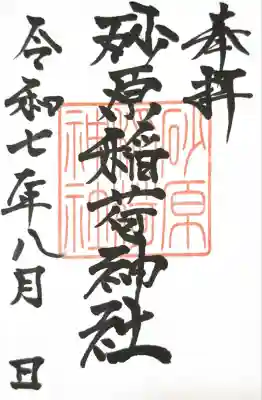 奉拝
砂原稲荷神社
令和七年八月 日
砂原
稲荷
神社